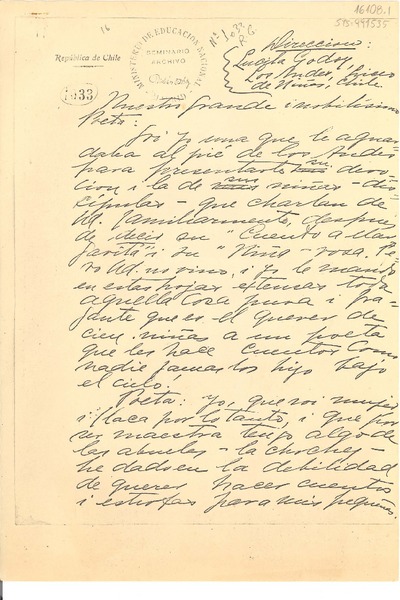 16108.1
595-499535
16
República de Chile
1933
MINISTERIO DE EDUCACIÓN NACIONAL
SEMINARIO
ARCHIVO
Nº 1033
R. G
Direccion:
Lucila Godoy,
Los Andes, Liceo
de Niñas, Chile.
Nuestro grande i nobilísimo
Poeta:
Soi yo una que le aguar-
daba al pié de los Andes
para presentarle su devo-
cion i la de sus niñas - dis-
cípulas - que charlan de
Ud. familiarmente, después
de decir su "Cuento a Mar-
garita" i su "Niña-rosa. Pe-
ro Ud. no vino, i yo le mando
en estas hojas estemas toda
aquella cosa pura i fra-
gante que es el querer de
cien niñas a un poeta
que les hace cuentos como
nadie jamas los hizo bajo
el cielo.
Poeta: yo, que soi mujer
i flaca por lo tanto, i que por
ser maestra tengo algo de
las abuelas - la chochez -
he dado en la debilidad
de querer hacer cuentos
i estrofas para mis pequeñas.